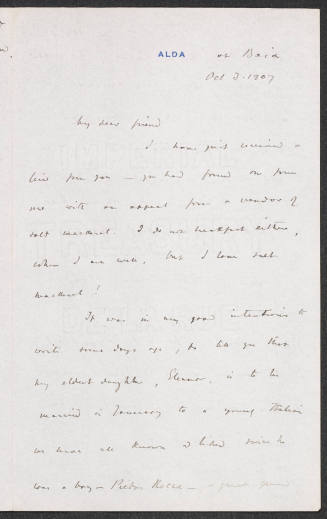 ALDA at Baia
Oct 3. 1907
My dear friend
I have just received a
line from you — you had found on your
with an appeal from a vendor of
salt mackerel. I do not breakfast either,
when I am well, but I love salt
mackerel!
It was in my good intentions to
write some days ago, to tell you that
my eldest daughter, Eleanor, is to be
married in January to a young Italian
we have all known & liked since he
was a boy — Pietro Rocca — a great grand